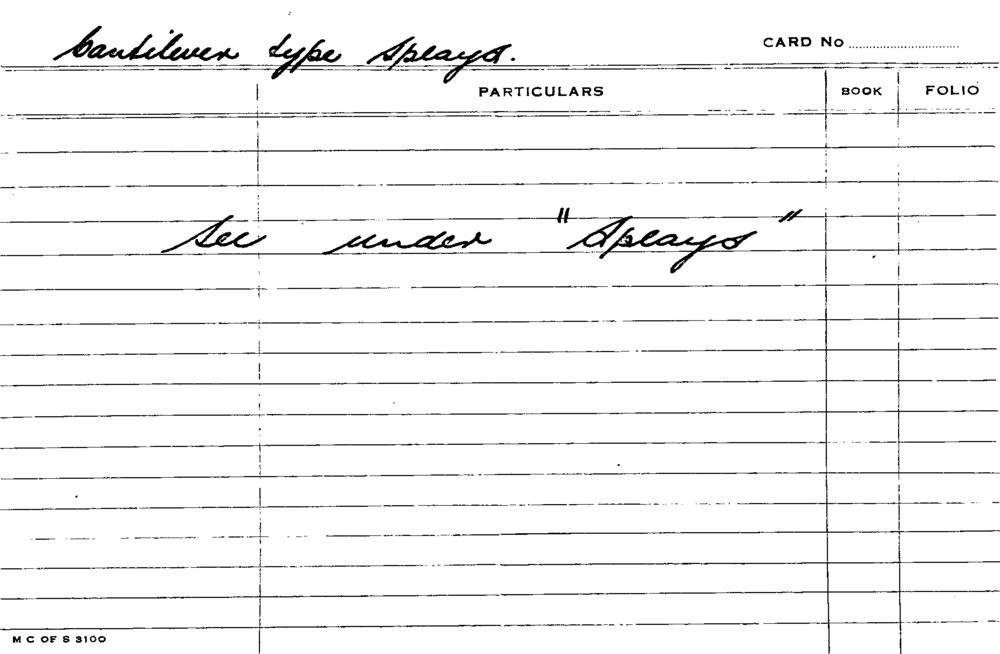 Cantilever type splays.
CARD No
PARTICULARS BOOK FOLIO
See under "Splays"
M C OF S 3100